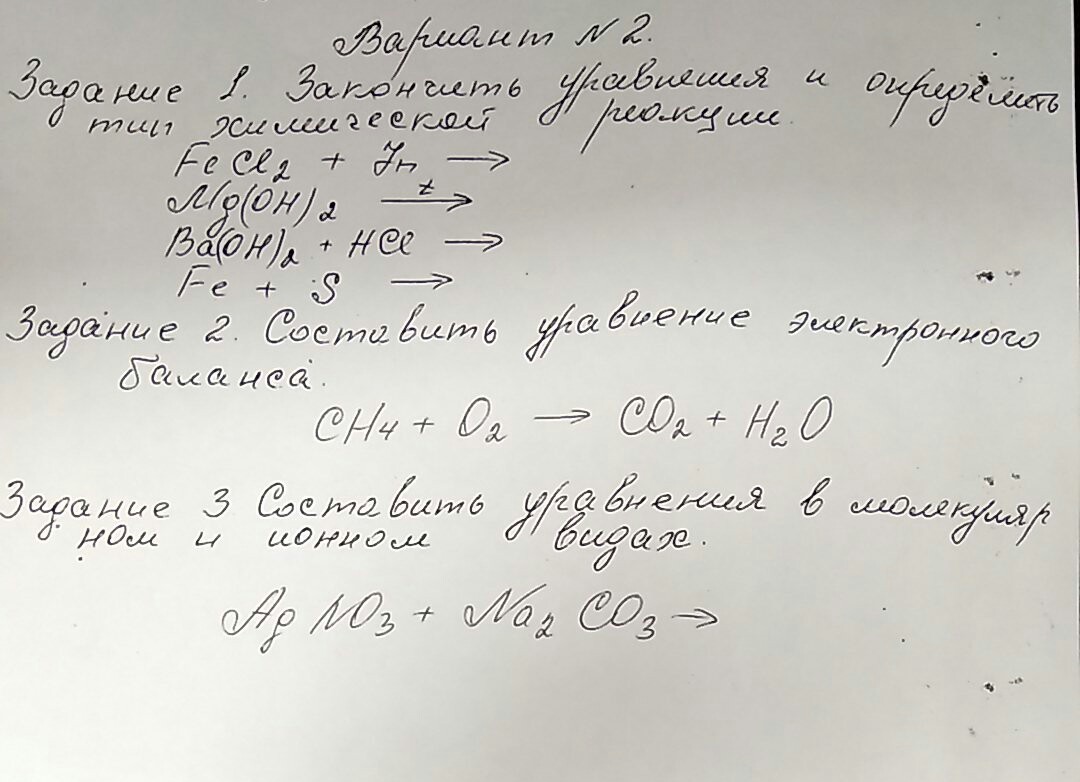 Вариант N 2.
Задание 1. Закончить уравнения и определить
тип химической реакции.
FeCl₂ + Zn →
Mg(OH)₂ →ᵗ
Ba(OH)₂ + HCl →
Fe + S →
Задание 2. Составить уравнение электронного
баланса.
CH₄ + O₂ → CO₂ + H₂O
Задание 3 Составить уравнения в молекуляр
ном и ионном видах.
AgNO₃ + Na₂CO₃ →